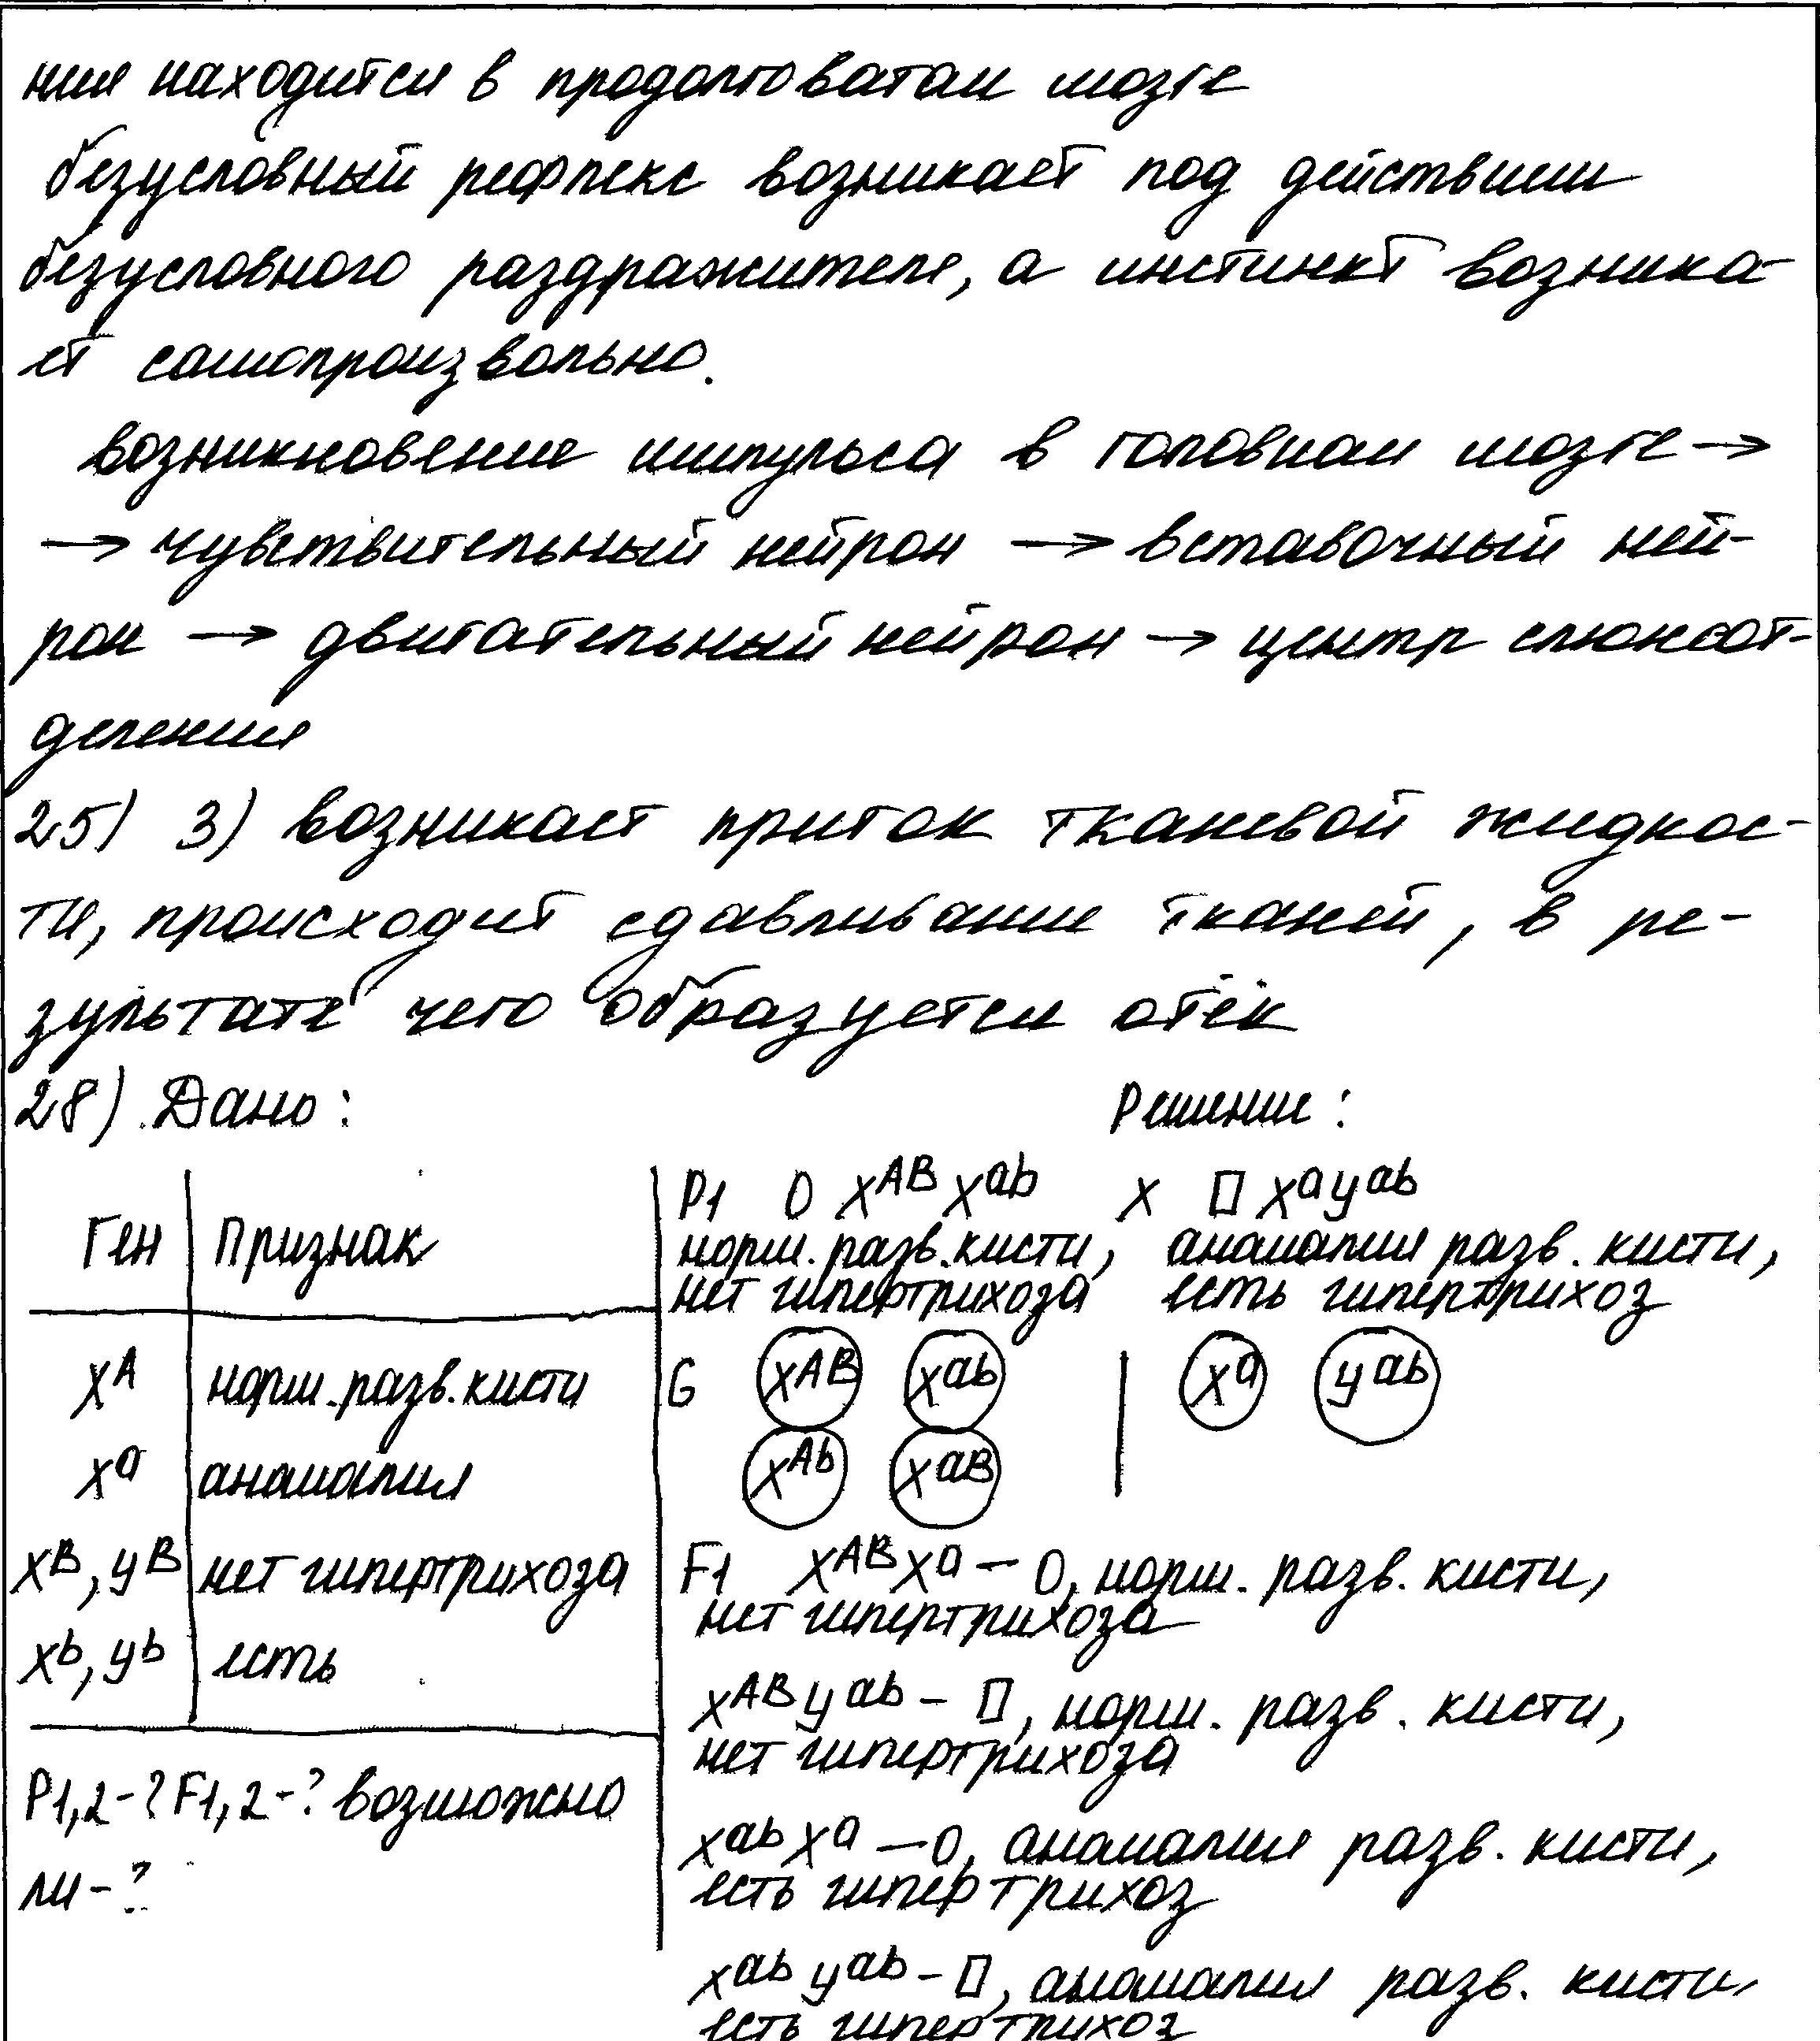 ния находится в продолговатом мозге
безусловный рефлекс возникает под действием
безусловного раздражителя, а инстинкт возника-
ет самопроизвольно.
возникновение импульса в головном мозге →
→ чувствительный нейрон → вставочный ней-
рон → двигательный нейрон → центр слюноот-
деления
25) 3) возникает приток тканевой жидкос-
ти, происходит сдавливание тканей, в ре-
зультате чего образуется отёк
28) Дано:
Ген | Признак
X^A | норм. разв. кисти
X^a | аномалия
X^B, Y^B | нет гипертрихоза
X^b, Y^b | есть
P1,2-? F1,2-? возможно
ли-?
Решение:
P1 O X^AB X^ab X □ X^a Y^ab
норм. разв. кисти, аномалия разв. кисти,
нет гипертрихоза есть гипертрихоз
G X^AB X^ab | X^a Y^ab
X^Ab X^aB
F1 X^AB X^a – O, норм. разв. кисти,
нет гипертрихоза
X^AB Y^ab – □, норм. разв. кисти,
нет гипертрихоза
X^ab X^a – O, аномалия разв. кисти,
есть гипертрихоз
X^ab Y^ab – □, аномалия разв. кисти,
есть гипертрихоз